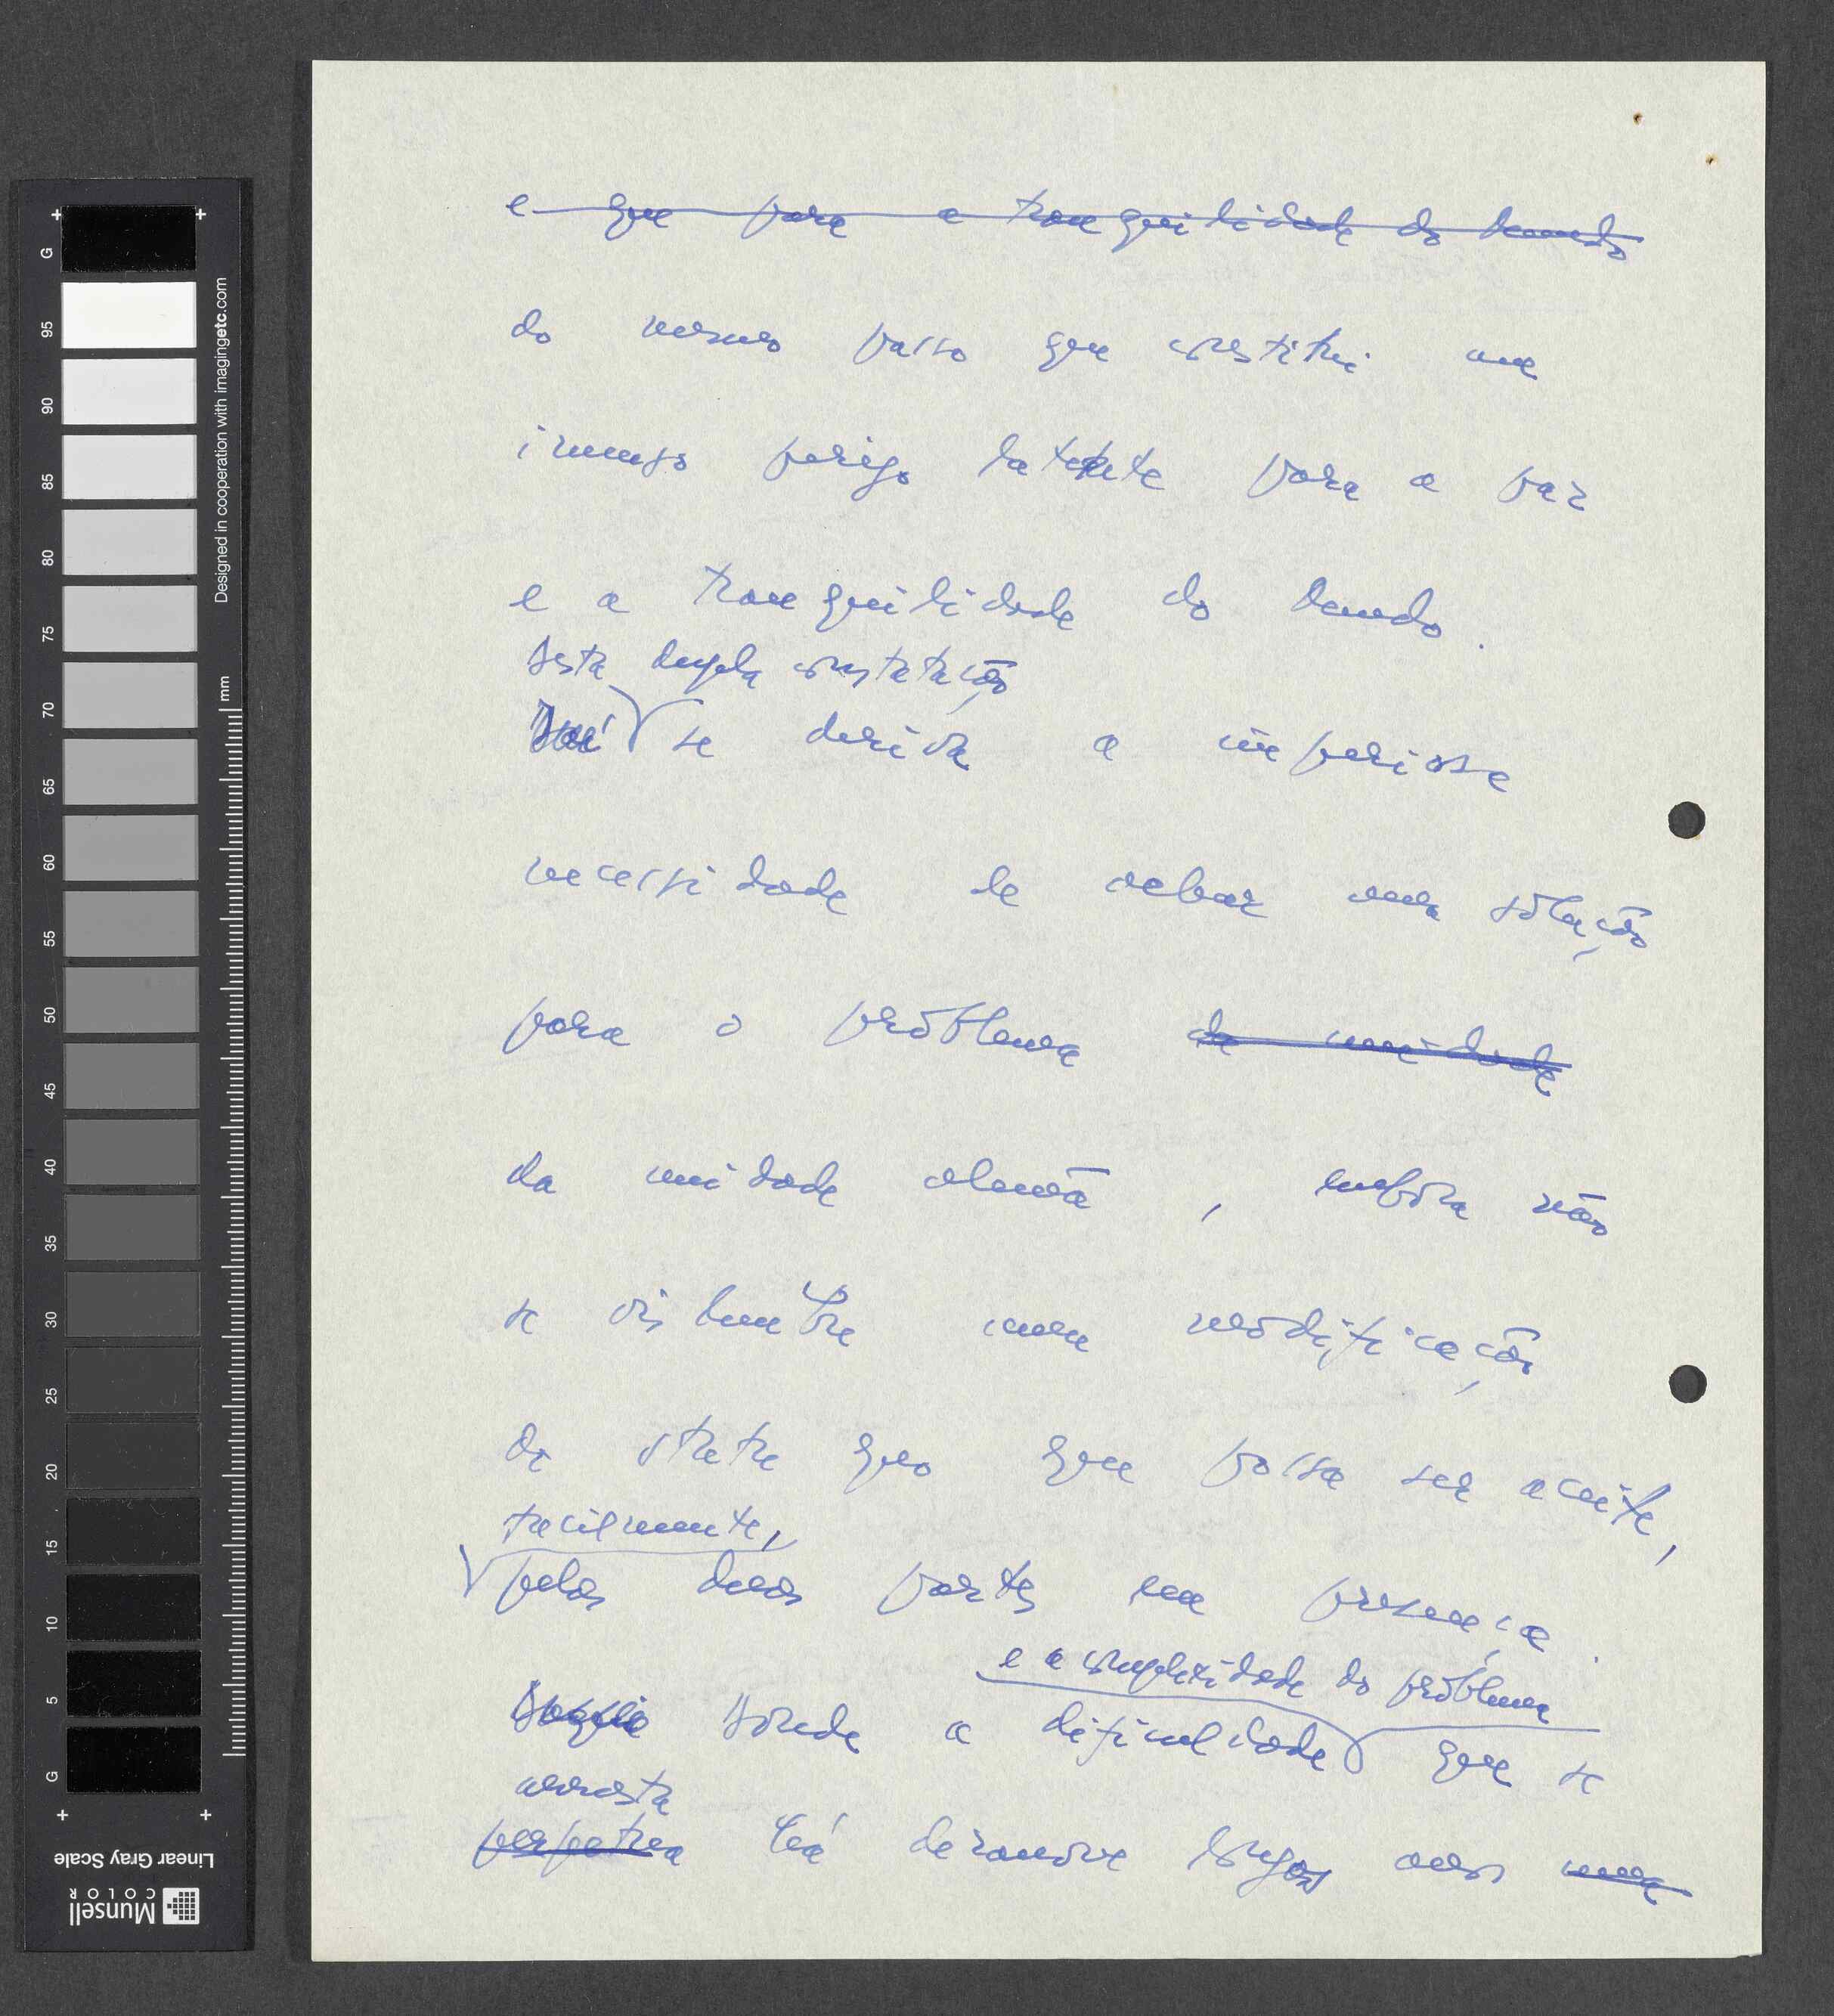 e que para a tranquilidade do Mundo
do mesmo passo que constitui um
imenso perigo latente para a paz
e a tranquilidade do Mundo.
Desta dupla constatação
Daí se deriva a imperiosa
necessidade de achar uma solução
para o problema da unidade
da unidade alemã, embora não
se vislumbre uma modificação
do statu quo que possa ser aceite,
facilmente,
pelas duas partes em presença.
e a complexidade do problema
Donde a dificuldade que se
arrasta
perpetua há dezanove longos anos uma
G 95 90 85 80 75 70 65 60 55 50 45 40 35 30 25 20 15 10 5 G
mm
Designed in cooperation with imagingetc.com
Linear Gray Scale
Munsell
COLOR